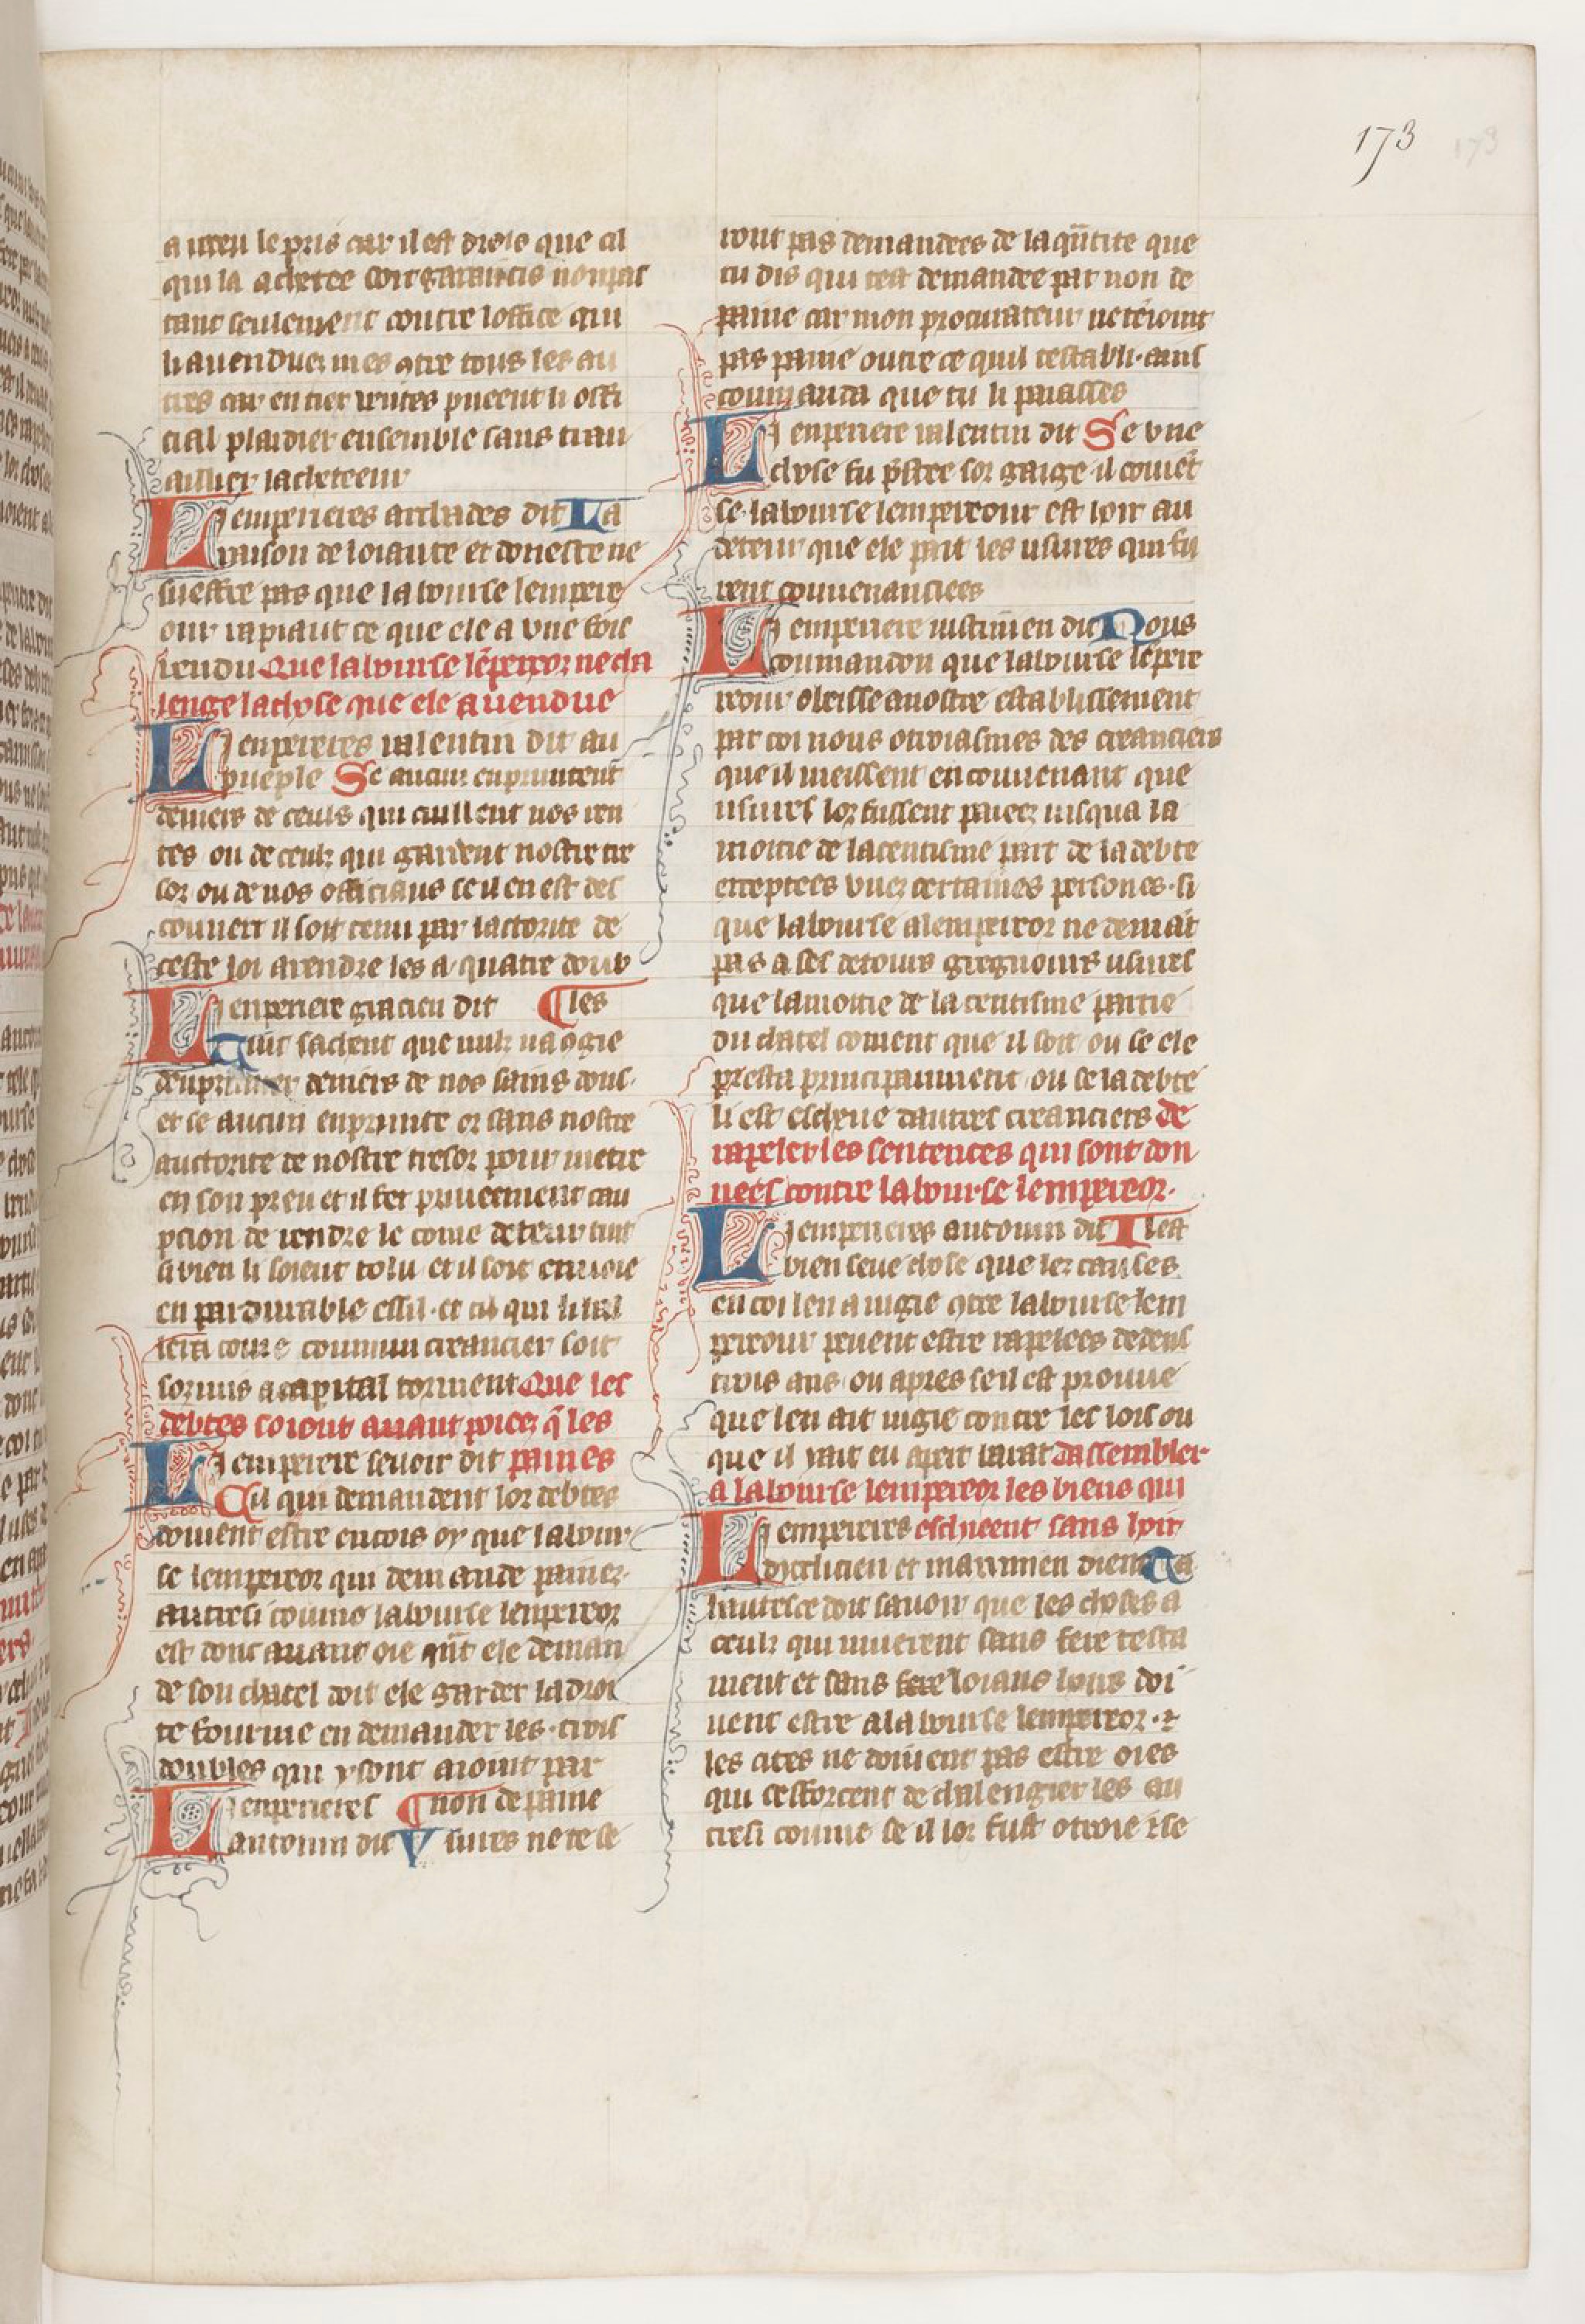 173
a uceu le pris car il est droiz que cil
qui la achetee soit garantis non pas
tant seulement contre loffice qui
li a uendue mes ɔtre tous les au
tres car en tiex uentes pueent li offi
cial plaidier ensemble sans trau
aillier lacheteeur
Li emperieres archades dit La
raison de loiaute et doneste ne
sueffre pas que la bourse lempere
our rapiaut ce que ele a vne fois
uendu Que la bourse lēpereor ne cha
lenge la chose que ele a uendue
Li enperieres ualentin dit au
pueple Se aucun enpruntent
deniers de ceuls qui cuillent nos ren
tes ou de ceulz qui gardent nostre tre
sor ou de nos officiaus se il en est des
couuert il soit tenu par lactorite de
ceste loi a rendre les a quatre doub
Li enperiere gracien dit ¶ les
Tuit sachent que nulz na ɔgie
denprunter deniers de nos sains dons.
et se aucun enprunte or sans nostre
auctorite de nostre tresor pour metre
en son preu et il fet priueement cau
pcion de rendre le come deteur tuit
si bien li soient tolu et il soit enuoie
en pardurable essil. et cil qui li bail
lera come commun creancier soit
sozmis a capital torment Que les
debtes soront auant poiez q̄ les
Li emperiere seuoir dit paines
Cil qui demandent lor debtes
doiuent estre encois oy que la bour
se lempereor qui demande paines.
autresi comme la bourse lenpereor
est donc auant oie qn̄t ele deman
de son chatel doit ele garder la droi
te fourme en demander les. trois
doubles qui y sont aioint par
Li enperieres ¶ non de paine
antonin dit Vsures ne te se
ront pas demandees de la qn̄tite que
tu dis qui test demandee par non de
paine car mon procurateur ne te ioint
pas paine outre ce quil testabli. ains
coumanda que tu li paiasses
Li enperiere ualentin dit Se vne
chose fu p̄stee sor gaige il couiēt
se la bourse lempereour est hoir au
deteur que ele pait les usures qui fu
rent couuenanciees
Li emperiere iustinien dit Nous
coumandon que la bourse lēpere
reour obeisse a nostre establissement
par coi nous otroiasmes des creanciers
que il meissent en couuenant que
usures lor fussent paiees iusqua la
moitie de la centisme part de la debte
exceptees vnez certaines persones. si
que la bourse a lempereor ne demāt
pas a ses detours gregnours usures
que la moitie de la centisme partie
du chatel coment que il soit ou se ele
presta principaument ou se la debte
li est escheue dautres creanciers de
rapeler les sentences qui sont don
nees contre la bourse lempereor.
Li emperieres antonin dit Il est
bien seue chose que lez causes
en coi len a iugie ɔtre la bourse lem
pereour pueent estre rapelees dedens
trois ans ou apres se il est prouue
que len ait iugie contre les lois ou
que il yait eu apert barat Dassembler
a la bourse lempereor les biens qui
Li emperieres escheent sans hoir
dyoclicien et maximien dient Ta
hautesce doit sauoir que les choses a
ceulz qui muerent sans fere testa
ment et sans fere loiaus hoirs doi
uent estre a la bourse lempereor. ⁊
les cites ne doiuent pas estre oies
qui sefforcent de chalengier les au
tresi comme se il lor fust otroie ⁊ se